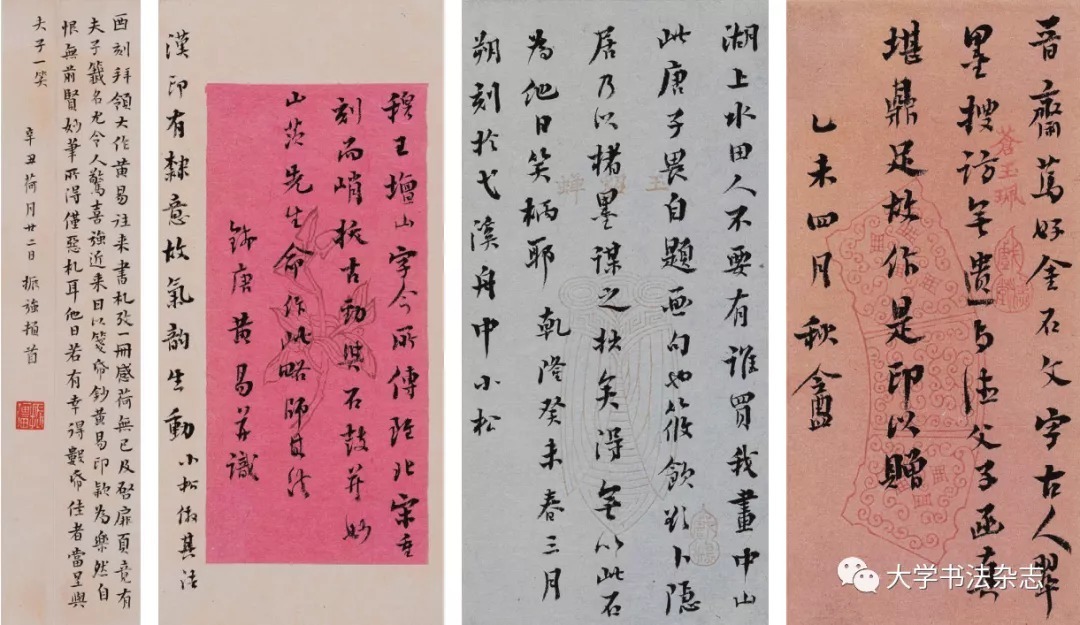 晋齋篤好金石文字古人翠
墨搜訪無遺与德父子函真
堪鼎足故作是印以贈
乙未四月秋盦
蒼玉珮
湖上水田人不要有誰買我畫中山
此唐子畏自題画句也筱飲欲卜隱
居乃以楮墨謀之拙矣得無以此石
為他日笑柄耶 乾隆癸未春三月
朔刻於弋溪舟中小松
玉蟬
穆王壇山字今所傳北宋重
刻而峭拔古勁與石鼓并妙
山茨先生命作此略師其法
錢唐黄易并識
漢印有隸意故氣韵生動 小松仿其法
酉刻拜領大作黄易往來書札攷一冊感荷無已及啓扉頁竟有
夫子籤名尤令人驚喜強近來日以箋帋鈔黄易印款為樂然自
恨無前賢妙筆所得僅惡札耳他日若有幸得數帋佳者當呈與
夫子一笑
辛丑荷月廿二日 振強頓首
大学书法杂志